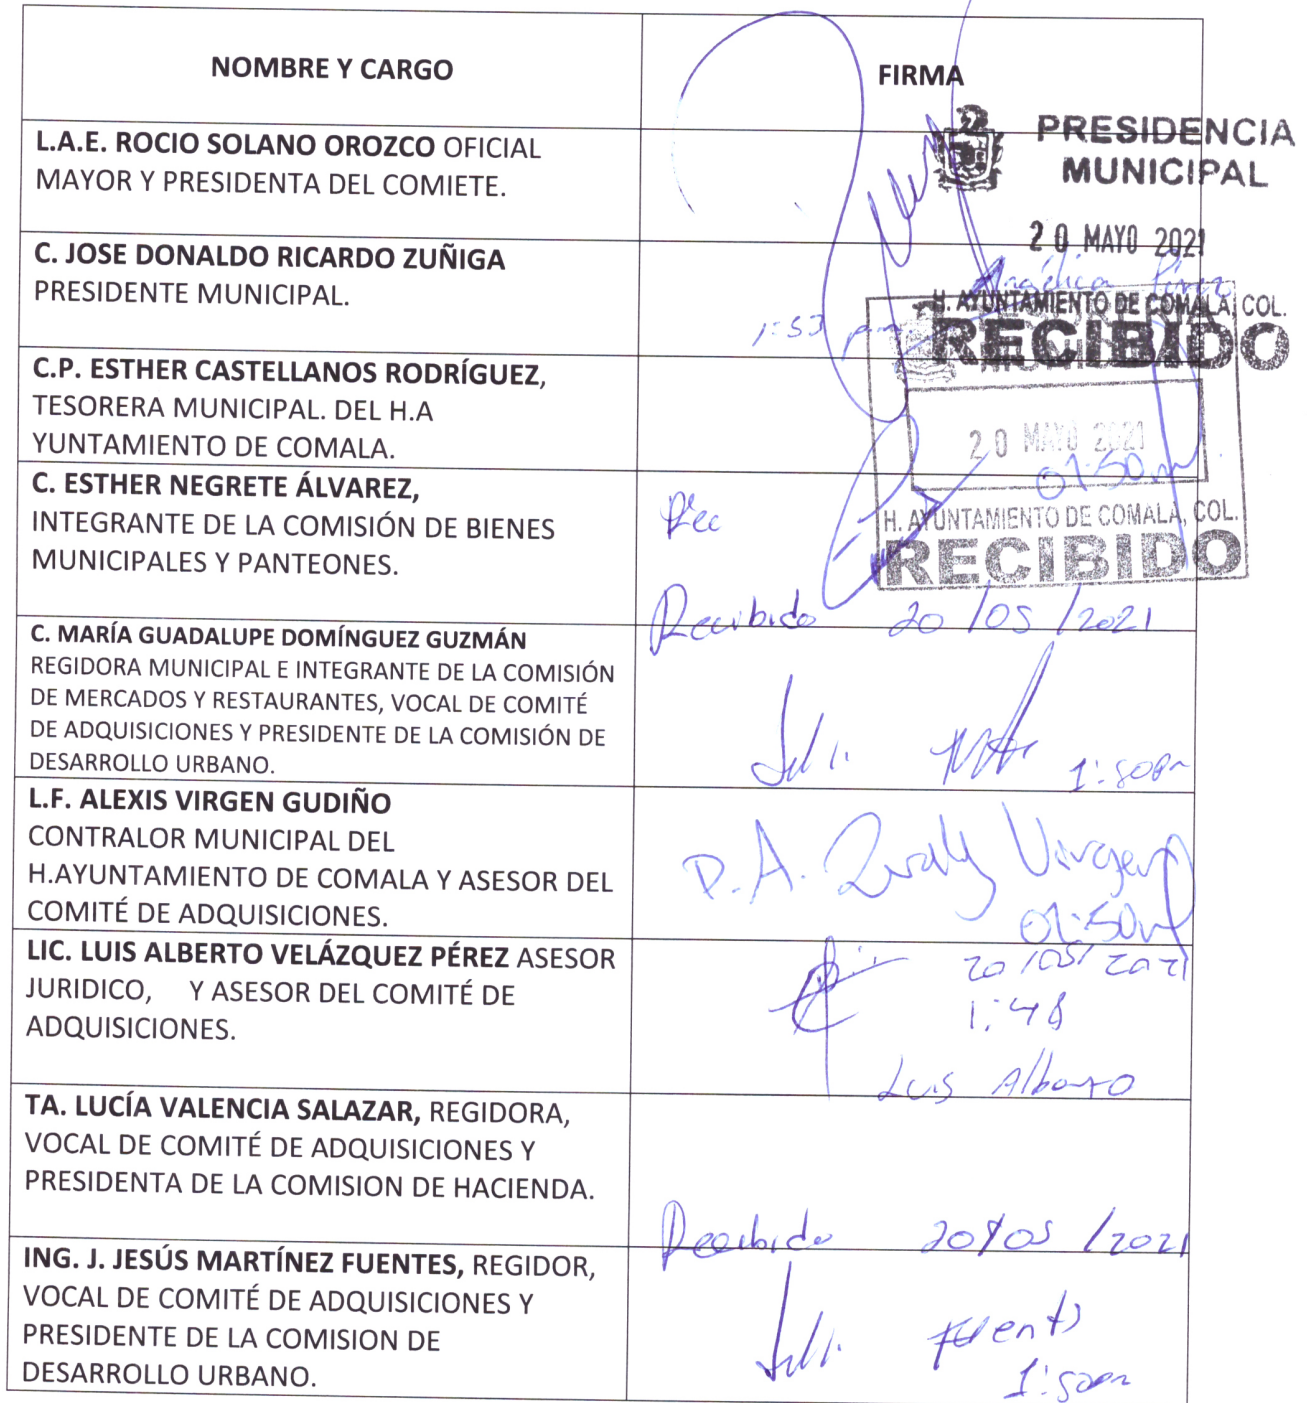 NOMBRE Y CARGO
FIRMA
L.A.E. ROCIO SOLANO OROZCO OFICIAL
MAYOR Y PRESIDENTA DEL COMIETE.
PRESIDENCIA
MUNICIPAL
20 MAYO 2021
C. JOSE DONALDO RICARDO ZUÑIGA
PRESIDENTE MUNICIPAL.
Angélica Pérez
1:53 pm
H. AYUNTAMIENTO DE COMALA, COL.
RECIBIDO
C.P. ESTHER CASTELLANOS RODRÍGUEZ,
TESORERA MUNICIPAL. DEL H.A
YUNTAMIENTO DE COMALA.
20 MAYO 2021
01:50
H. AYUNTAMIENTO DE COMALA, COL.
RECIBIDO
C. ESTHER NEGRETE ÁLVAREZ,
INTEGRANTE DE LA COMISIÓN DE BIENES
MUNICIPALES Y PANTEONES.
Rec
Recibido 20/05/2021
C. MARÍA GUADALUPE DOMÍNGUEZ GUZMÁN
REGIDORA MUNICIPAL E INTEGRANTE DE LA COMISIÓN
DE MERCADOS Y RESTAURANTES, VOCAL DE COMITÉ
DE ADQUISICIONES Y PRESIDENTE DE LA COMISIÓN DE
DESARROLLO URBANO.
1:50pm
L.F. ALEXIS VIRGEN GUDIÑO
CONTRALOR MUNICIPAL DEL
H.AYUNTAMIENTO DE COMALA Y ASESOR DEL
COMITÉ DE ADQUISICIONES.
P.A. Virgen
01:50
LIC. LUIS ALBERTO VELÁZQUEZ PÉREZ ASESOR
JURIDICO, Y ASESOR DEL COMITÉ DE
ADQUISICIONES.
20/05/2021
1:48
Luis Alberto
TA. LUCÍA VALENCIA SALAZAR, REGIDORA,
VOCAL DE COMITÉ DE ADQUISICIONES Y
PRESIDENTA DE LA COMISION DE HACIENDA.
Recibido 20/05/2021
ING. J. JESÚS MARTÍNEZ FUENTES, REGIDOR,
VOCAL DE COMITÉ DE ADQUISICIONES Y
PRESIDENTE DE LA COMISION DE
DESARROLLO URBANO.
1:50pm